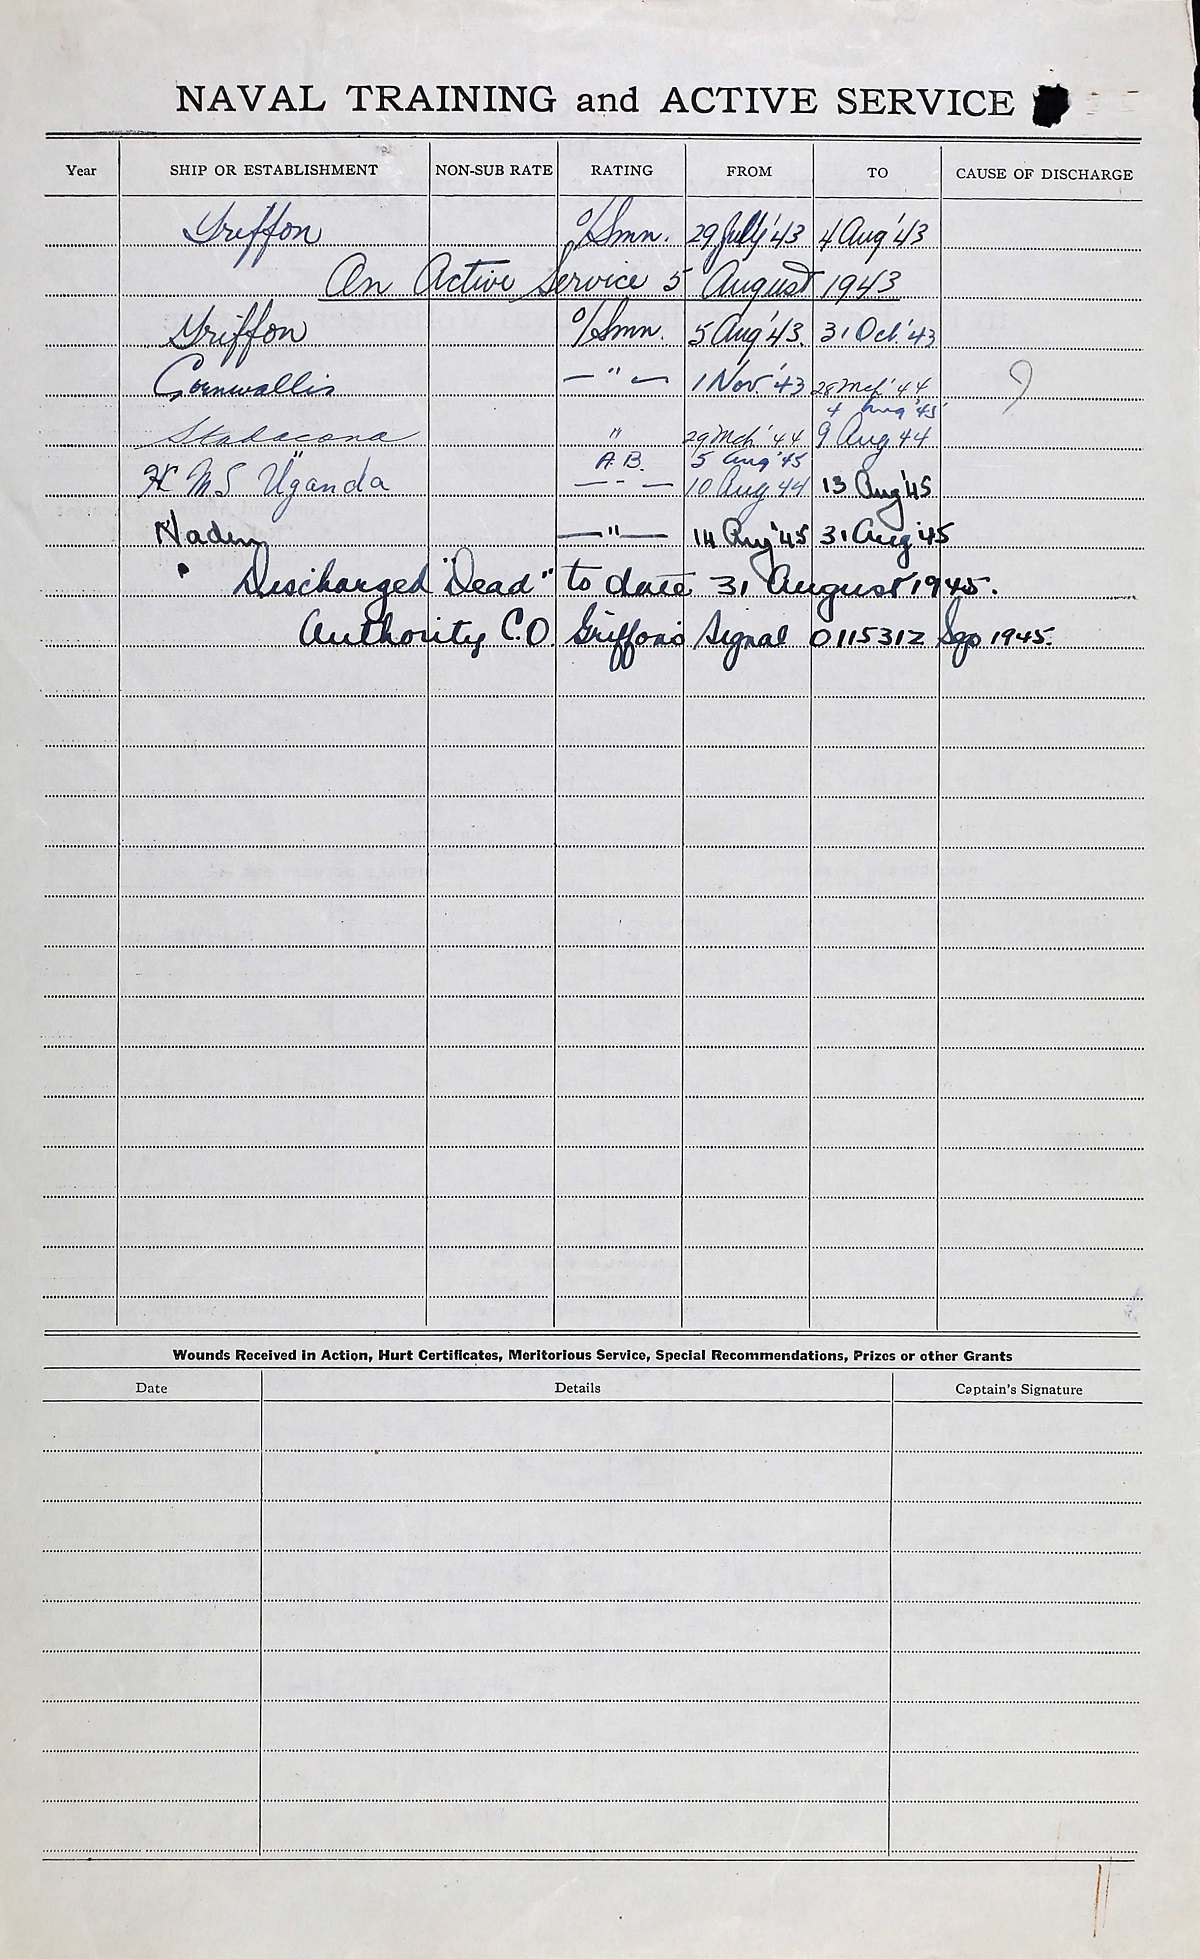 NAVAL TRAINING and ACTIVE SERVICE
Year SHIP OR ESTABLISHMENT NON-SUB RATE RATING FROM TO CAUSE OF DISCHARGE
Griffon O/Smn. 29 July '43 4 Aug '43
On Active Service 5 August 1943
Griffon O/Smn. 5 Aug '43. 31 Oct. '43
Cornwallis — " — 1 Nov. '43 28 Mch '44
4 Aug '45
Stadacona " 29 Mch '44 9 Aug 44
A.B. 5 Aug '45
H M S "Uganda — - — 10 Aug 44 13 Aug '45
Naden — " — 14 Aug '45 31 Aug '45
Discharged "Dead" to date 31 August 1945.
Authority C.O. Griffon's Signal 011531Z Sep 1945.
Wounds Received in Action, Hurt Certificates, Meritorious Service, Special Recommendations, Prizes or other Grants
Date Details Captain's Signature